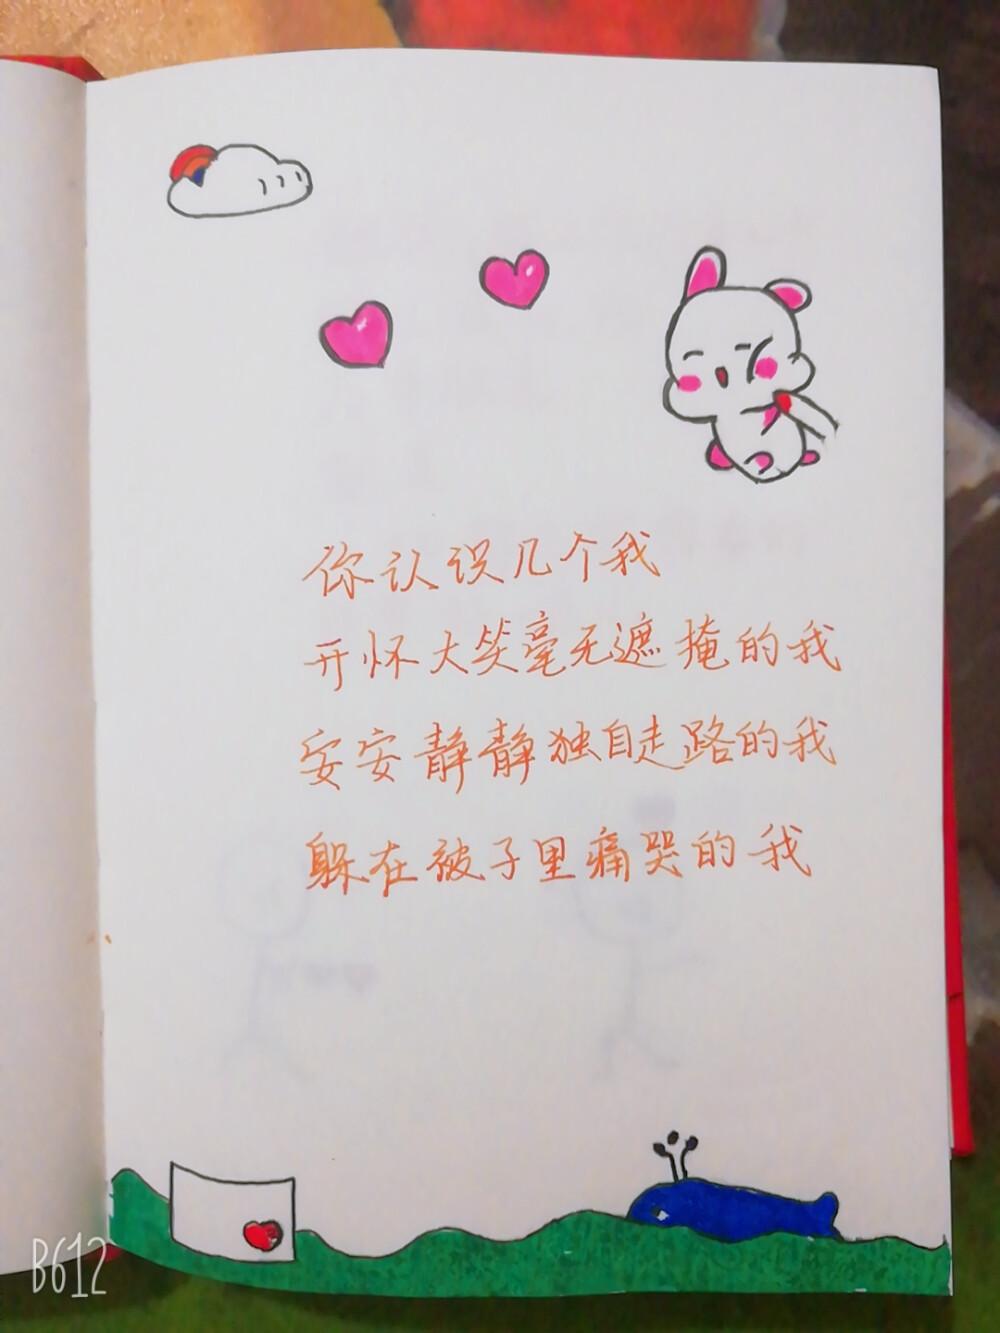 你认识几个我
开怀大笑毫无遮掩的我
安安静静独自走路的我
躲在被子里痛哭的我
B612